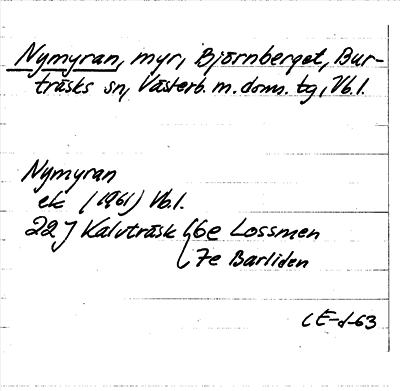 Nymyran, myr, Björnberget, Bur-
träsks sn, Västerb. m. doms. tg, Vb. l.
Nymyran
ek (1961) Vb. l.
22 J Kalvträsk 6e Lossmen
7e Barliden
CE-d-63